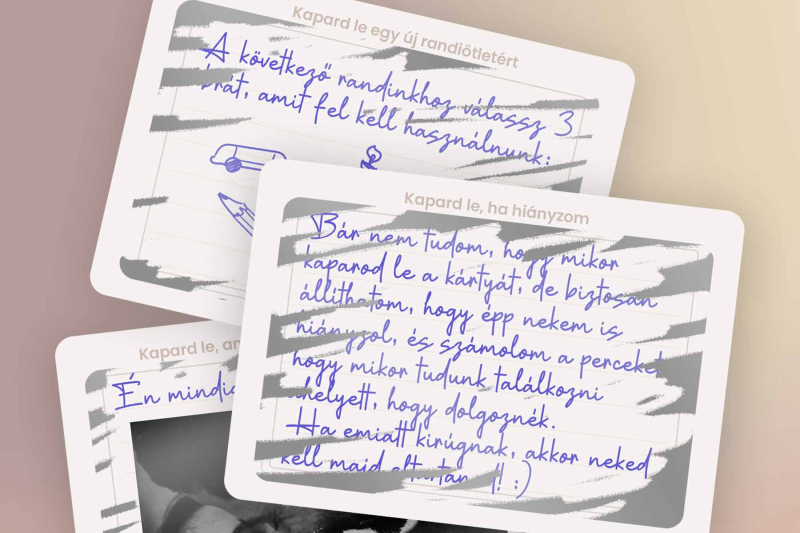 Kapard le egy új randiötletért
A következő randinkhoz válassz 3
amit fel kell használnunk:
Kapard le, ha hiányzom
Bár nem tudom, hogy mikor
kaparod le a kártyát, de biztosan
állíthatom, hogy épp nekem is
hiányzol, és számolom a perceket
hogy mikor tudunk találkozni
ahelyett, hogy dolgoznék.
Ha emiatt kirúgnak, akkor neked
kell majd :)
Kapard le,
Én